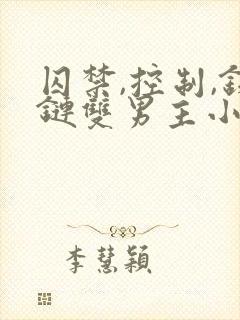 囚禁,控制,
鏈雙男主小
李慧穎